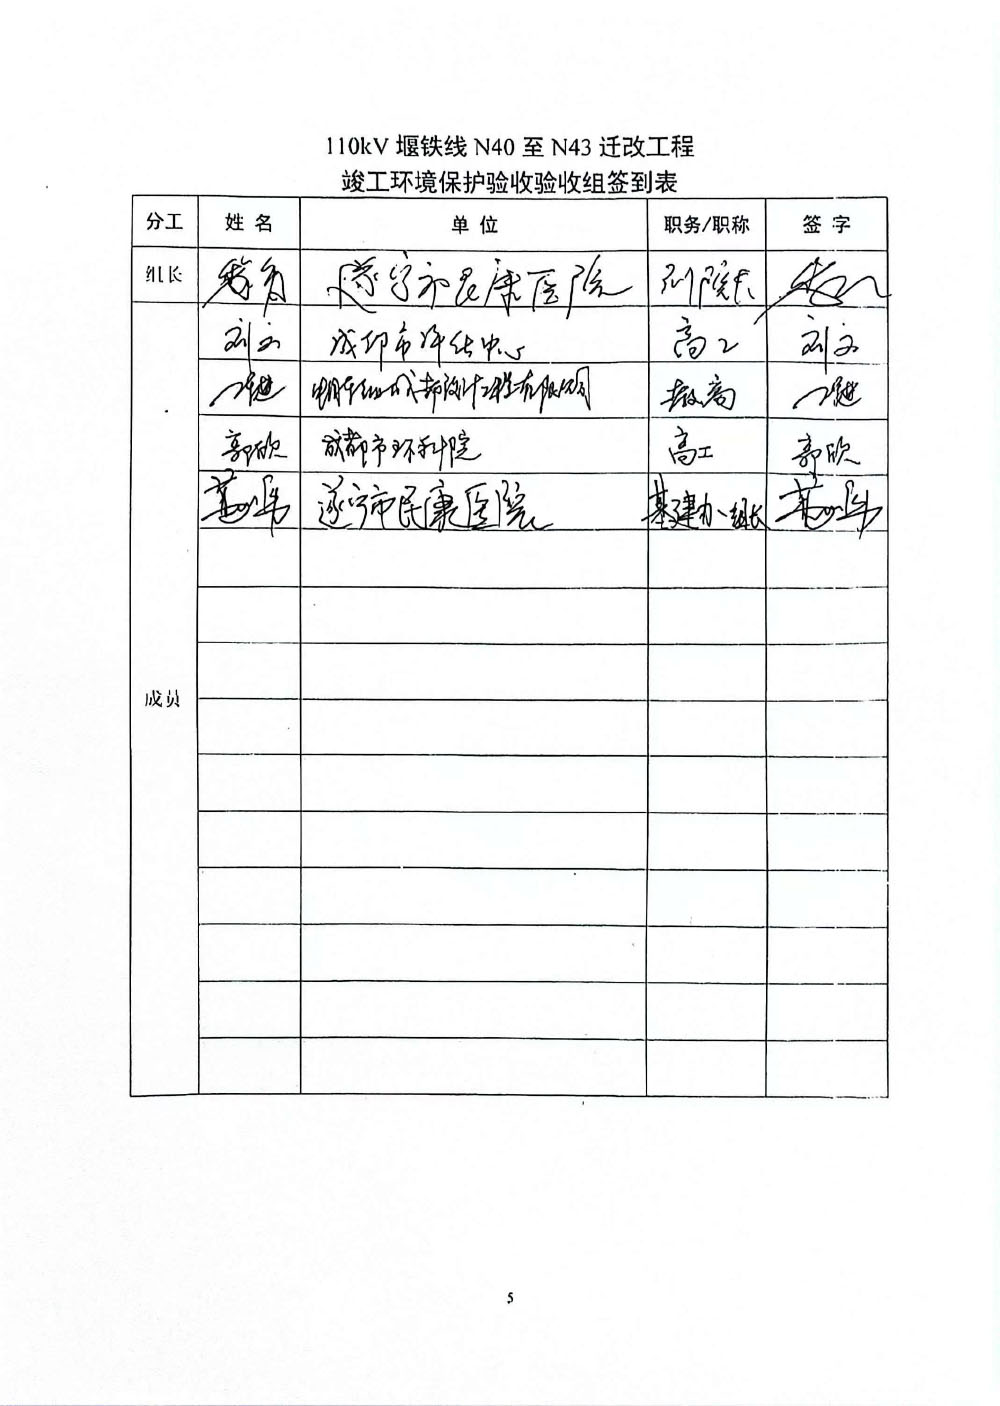 110kV 堰铁线 N40 至 N43 迁改工程
竣工环境保护验收验收组签到表
分工 姓 名 单 位 职务/职称 签 字
组长 遂宁市民康医院 副院长
刘文 成都市评估中心 高工 刘文
成都设计工程有限公司 教高
郭欣 成都市环科院 高工 郭欣
遂宁市民康医院 基建办组长
成员
5